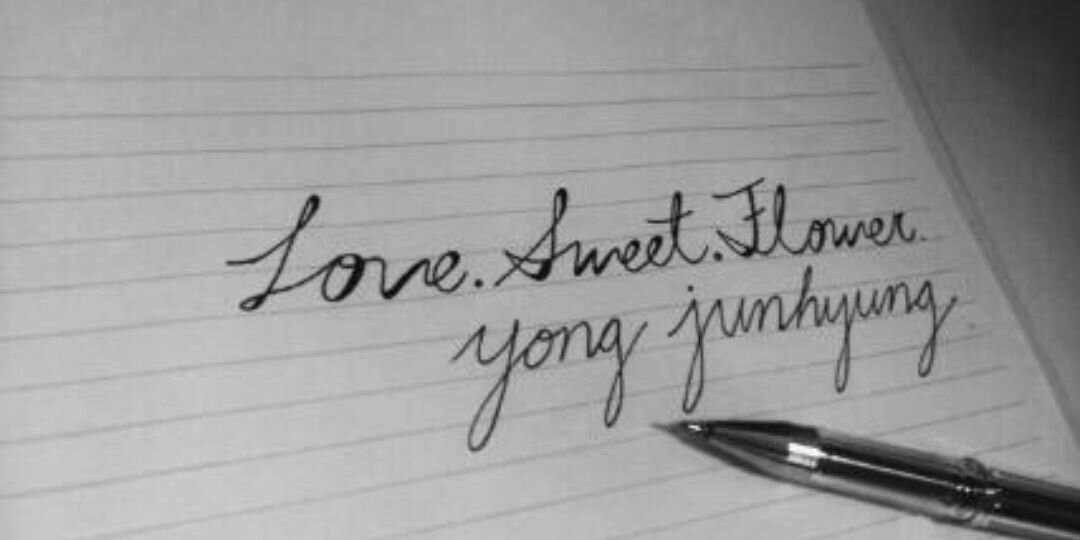 Love. Sweet. Flower.
yong junhyung